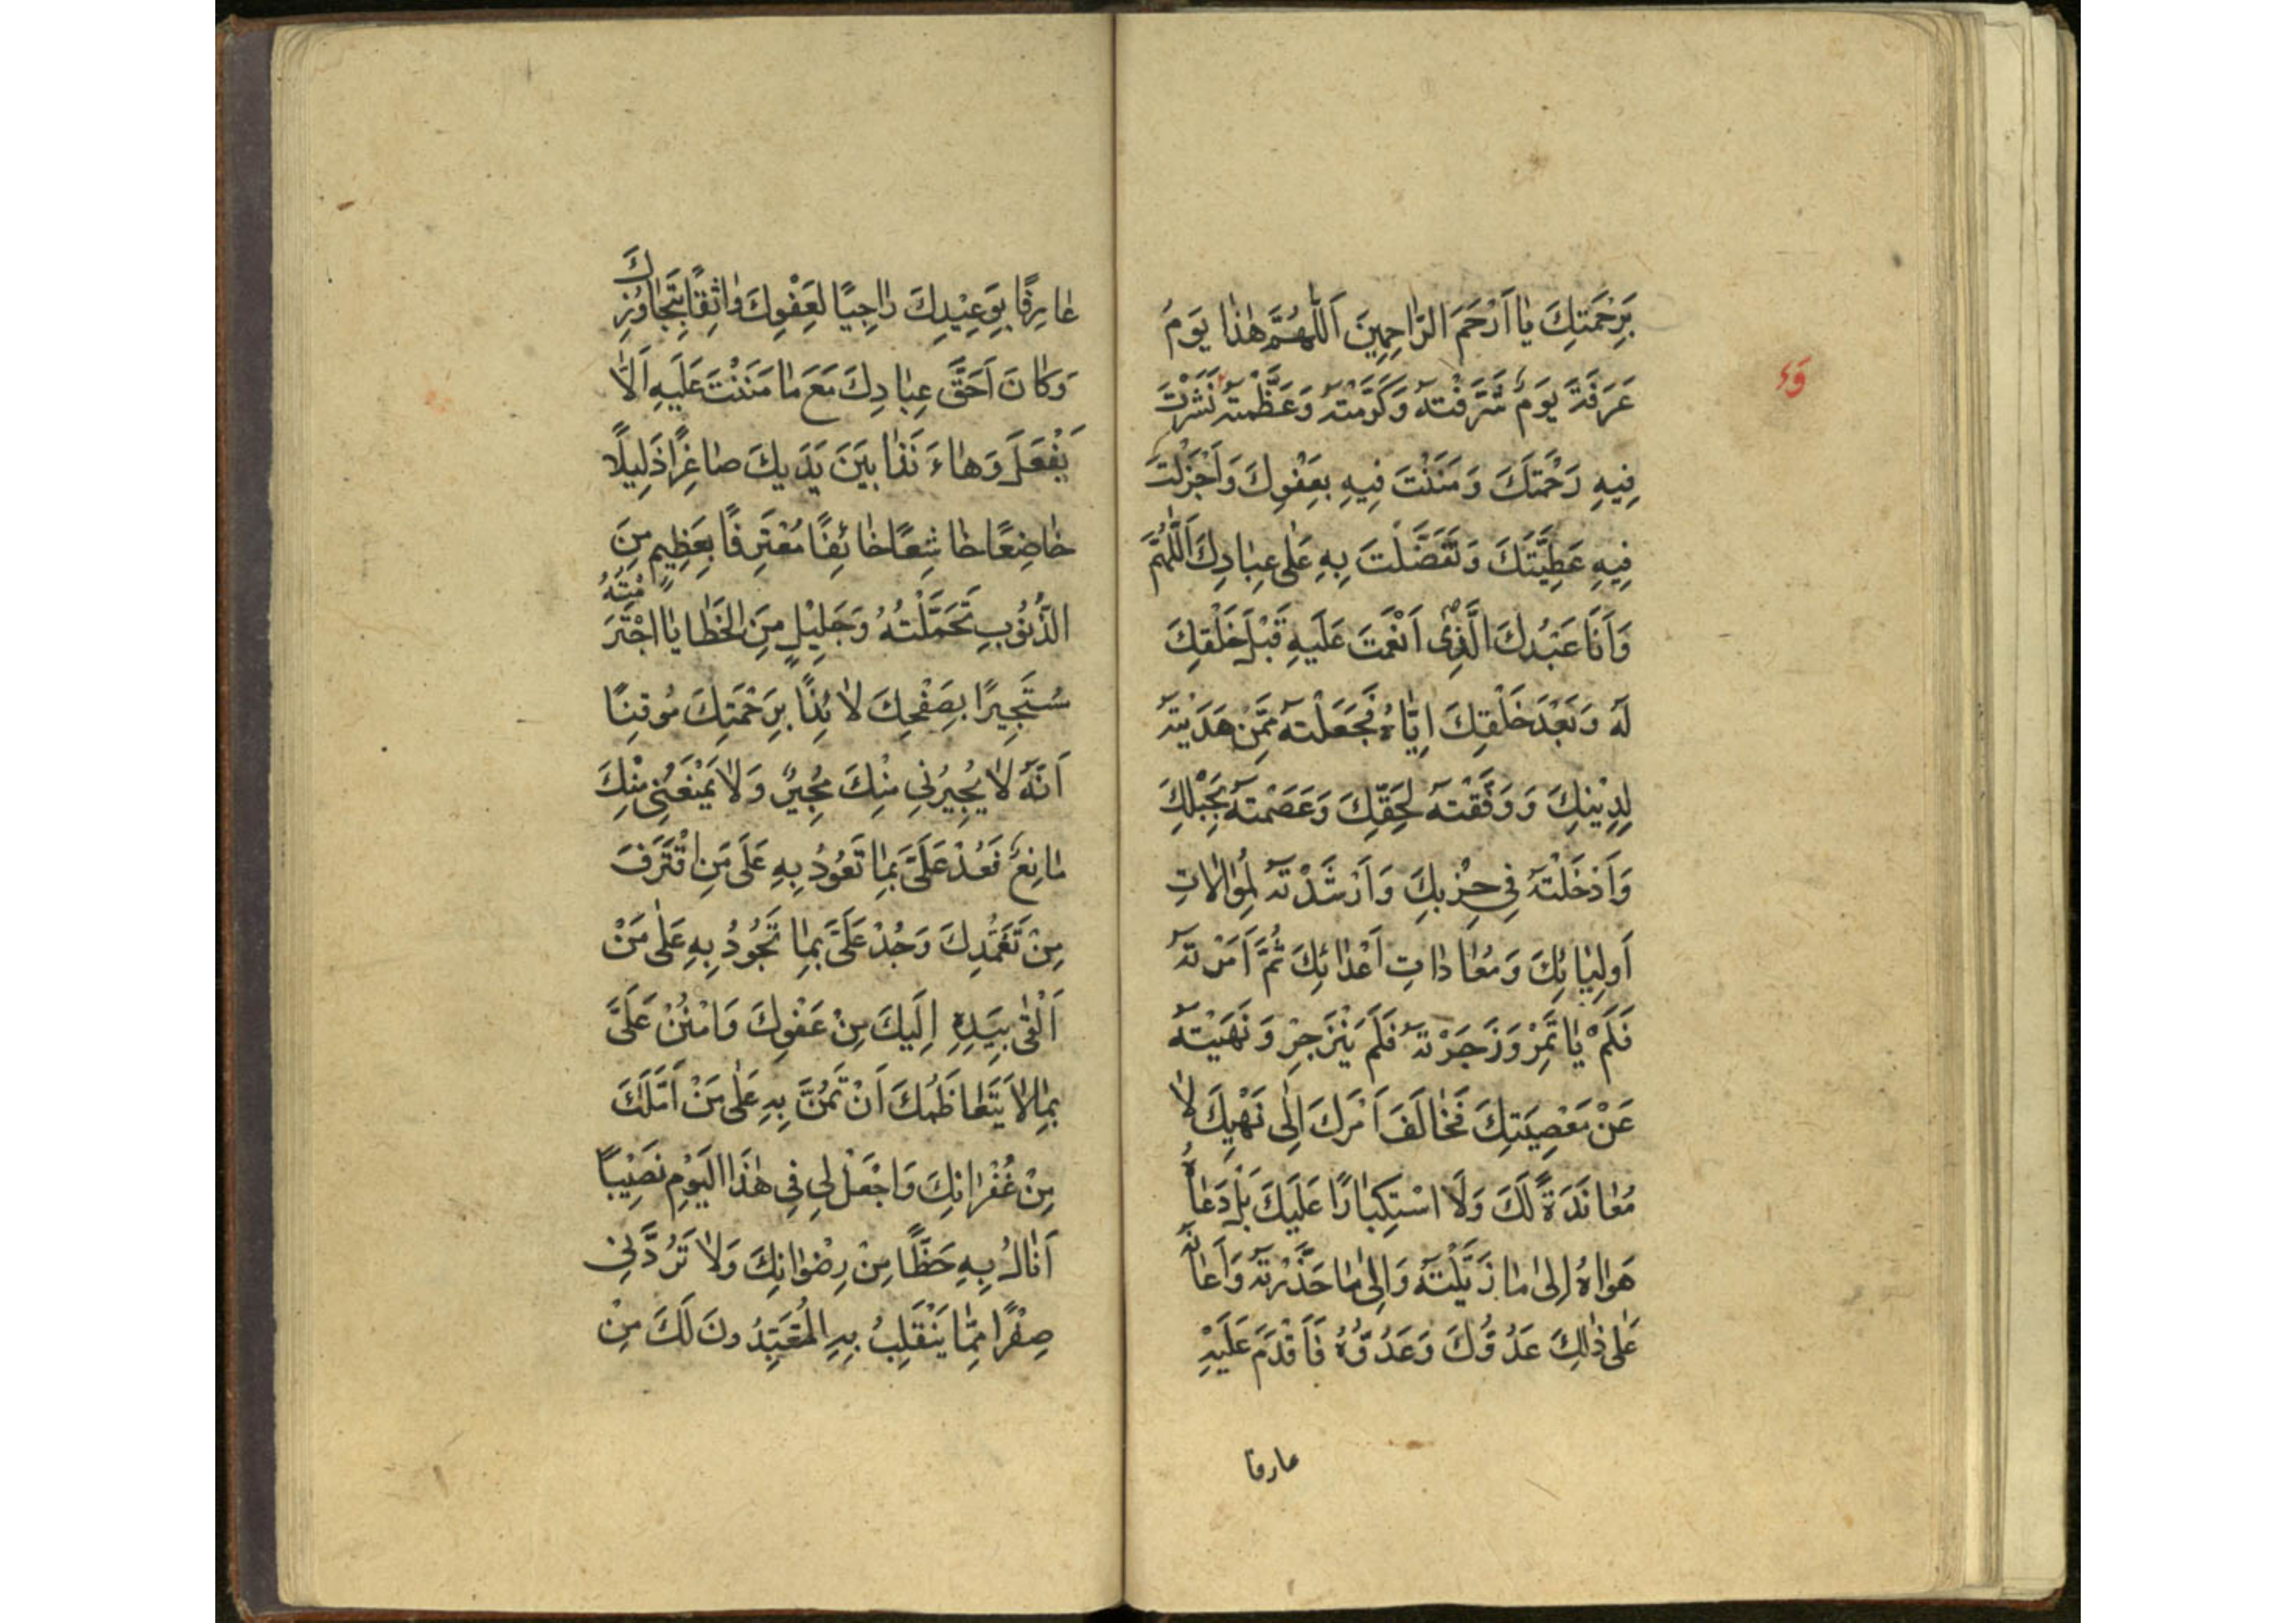 بِرَحْمَتِكَ يَا اَرْحَمَ الرَّاحِمِينَ اَللّٰهُمَّ هٰذَا يَوْمُ
عَرَفَةَ يَوْمٌ شَرَّفْتَهُ وَكَرَّمْتَهُ وَعَظَّمْتَهُ نَشَرْتَ
فِيهِ رَحْمَتَكَ وَمَنَنْتَ فِيهِ بِعَفْوِكَ وَاَجْزَلْتَ
فِيهِ عَطِيَّتَكَ وَتَفَضَّلْتَ بِهِ عَلٰى عِبَادِكَ اَللّٰهُمَّ
وَاَنَا عَبْدُكَ الَّذِى اَنْعَمْتَ عَلَيْهِ قَبْلَ خَلْقِكَ
لَهُ وَبَعْدَ خَلْقِكَ اِيَّاهُ فَجَعَلْتَهُ مِمَّنْ هَدَيْتَهُ
لِدِيْنِكَ وَوَفَّقْتَهُ لِحَقِّكَ وَعَصَمْتَهُ بِحَبْلِكَ
وَاَدْخَلْتَهُ فِي حِزْبِكَ وَاَرْشَدْتَهُ لِمُوَالَاتِ
اَولِيَائِكَ وَمُعَادَاتِ اَعْدَائِكَ ثُمَّ اَمَرْتَهُ
فَلَمْ يَاتَمِرْ وَزَجَرْتَهُ فَلَمْ يَنْزَجِرْ وَنَهَيْتَهُ
عَنْ مَعْصِيَتِكَ فَخَالَفَ اَمْرَكَ اِلٰى نَهْيِكَ لَا
مُعَانَدَةً لَكَ وَلَا اسْتِكْبَارًا عَلَيْكَ بَلْ دَعَاهُ
هَوَاهُ اِلٰى مَا زَيَّلْتَهُ وَاِلٰى مَا حَذَّرْتَهُ وَاَعَانَهُ
عَلٰى ذٰلِكَ عَدُوُّكَ وَعَدُوُّهُ فَاَقْدَمَ عَلَيْهِ
عارفا
عَارِفًا بِوَعِيْدِكَ رَاجِيًا لِعَفْوِكَ وَاثِقًا بِتَجَاوُزِكَ
وَكَانَ اَحَقَّ عِبَادِكَ مَعَ مَا مَنَنْتَ عَلَيْهِ اَلَّا
يَفْعَلَ وَهَاءَ نَذَا بَيْنَ يَدَيكَ صَاغِرًا ذَلِيلًا
خَاضِعًا خَاشِعًا خَائِفًا مُعْتَرِفًا بِعَظِيمٍ مِنَ
الذُّنُوبِ تَحَمَّلْتُهُ وَجَلِيْلٍ مِنَ الْخَطَايَا اجْتَرَمْتُهُ
مُسْتَجِيرًا بِصَفْحِكَ لَائِذًا بِرَحْمَتِكَ مُوقِنًا
اَنَّهُ لَا يُجِيْرُنِي مِنْكَ مُجِيْرٌ وَلَا يَمْنَعُنِي مِنْكَ
مَانِعٌ فَعُدْ عَلَىَّ بِمَا تَعُودُ بِهِ عَلَى مَنِ اقْتَرَفَ
مِنْ تَغَمُّدِكَ وَجُدْ عَلَىَّ بِمَا تَجُودُ بِهِ عَلٰى مَنْ
اَلْقٰى بِيَدِهِ اِلَيكَ مِنْ عَفْوِكَ وَامْنُنْ عَلَىَّ
بِمَا لَا يَتَعَاظَمُكَ اَنْ تَمُنَّ بِهِ عَلٰى مَنْ اَمَّلَكَ
مِنْ غُفْرَانِكَ وَاجْعَلْ لِي فِي هٰذَا الْيَوْمِ نَصِيْبًا
اَنَالُ بِهِ حَظًّا مِنْ رِضْوَانِكَ وَلَا تَرُدَّنِي
صِفْرًا مِمَّا يَنْقَلِبُ بِهِ الْمُتَعَبِّدُونَ لَكَ مِنْ